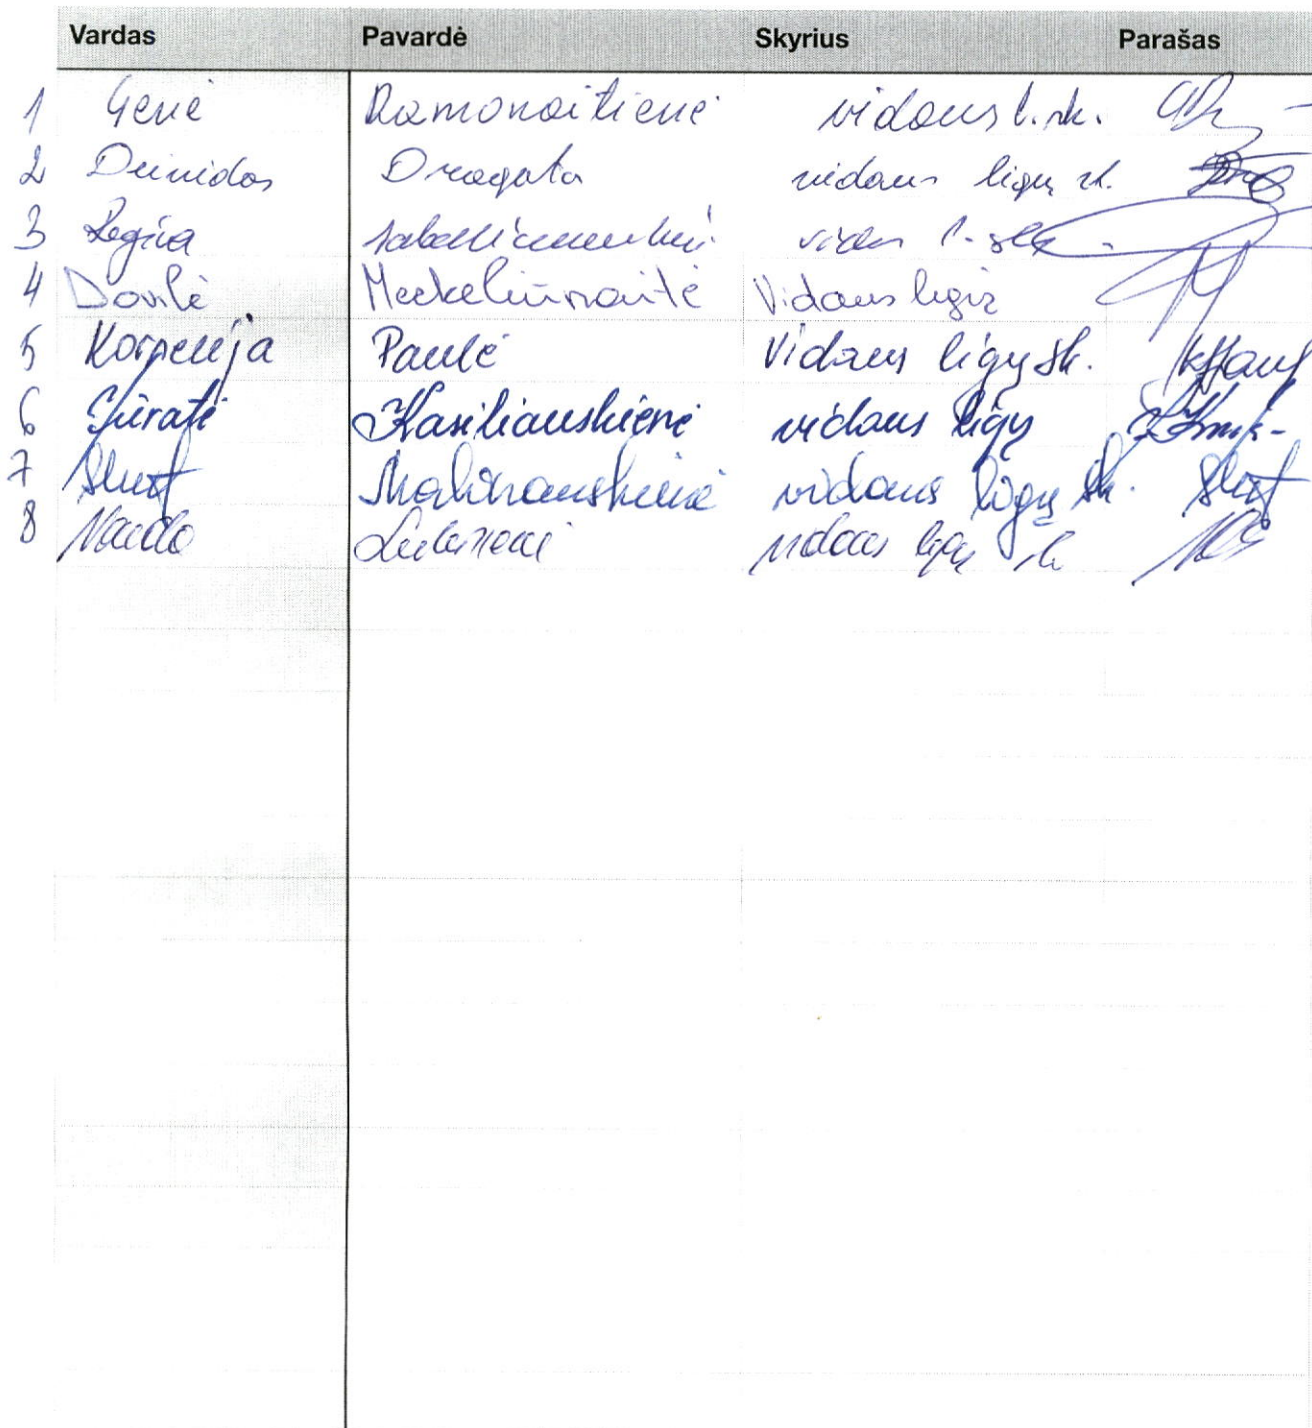 Vardas Pavardė Skyrius Parašas
1 Genė Ramonaitienė vidaus l. sk.
2 Deividas Dragata vidaus ligų sk.
3 Regina l. sk.
4 Dovilė Meckeliūnaitė Vidaus ligų
5 Kornelija Paulė Vidaus ligų sk.
6 Jūratė Kasiliauskienė vidaus ligų
7 Malinauskienė vidaus ligų sk.
8 vidaus ligų sk